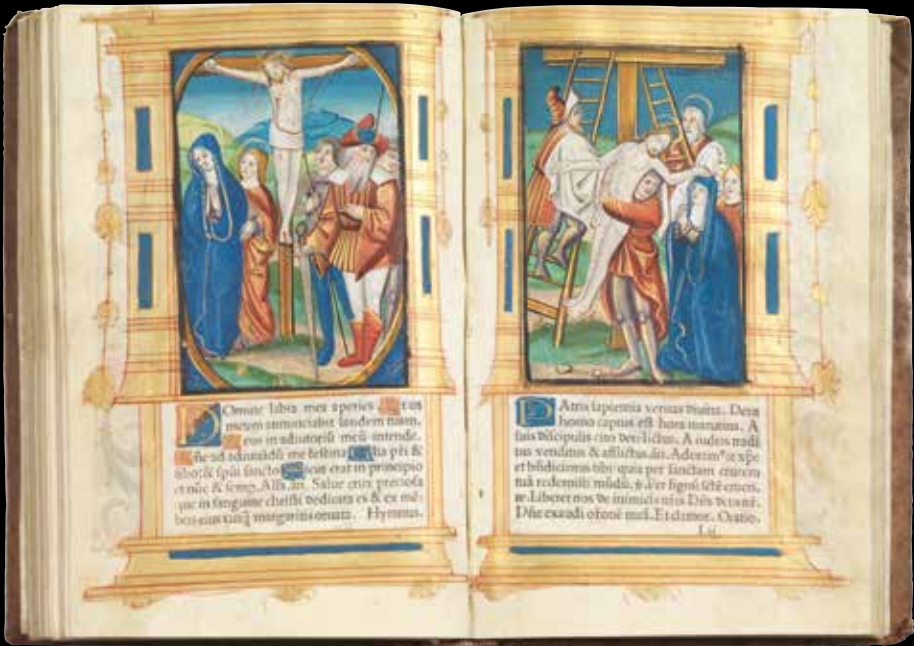 DOmine labia mea aperies Et os
meum annunciabit laudem tuam.
Deus in adiutoriū meū intende.
Dñe ad adiuuādū me festina Glia pr̄i &
filio & spūi sancto Sicut erat in principio
et nūc & semp. Alla. añ. Salue crux preciosa
que in sanguine christi dedicata es & ex mē-
bris eius tanq̄ margaritis ornata. Hymnus.
PAtris sapientia veritas diuina. Deus
homo captus est hora matutina. A
suis discipulis cito derelictus. A iudeis tradi
tus venditus & afflictus. añ. Adoramus te xp̄e
et bn̄dicimus tibi quia per sanctam crucem
tuā redemisti mūdū. ℣. Per signū sctē crucis.
℟. Liberet nos de inimicis nr̄is Dñs deus nr̄.
Dñe exaudi or̄onē meā. Et clamor. Oratio.